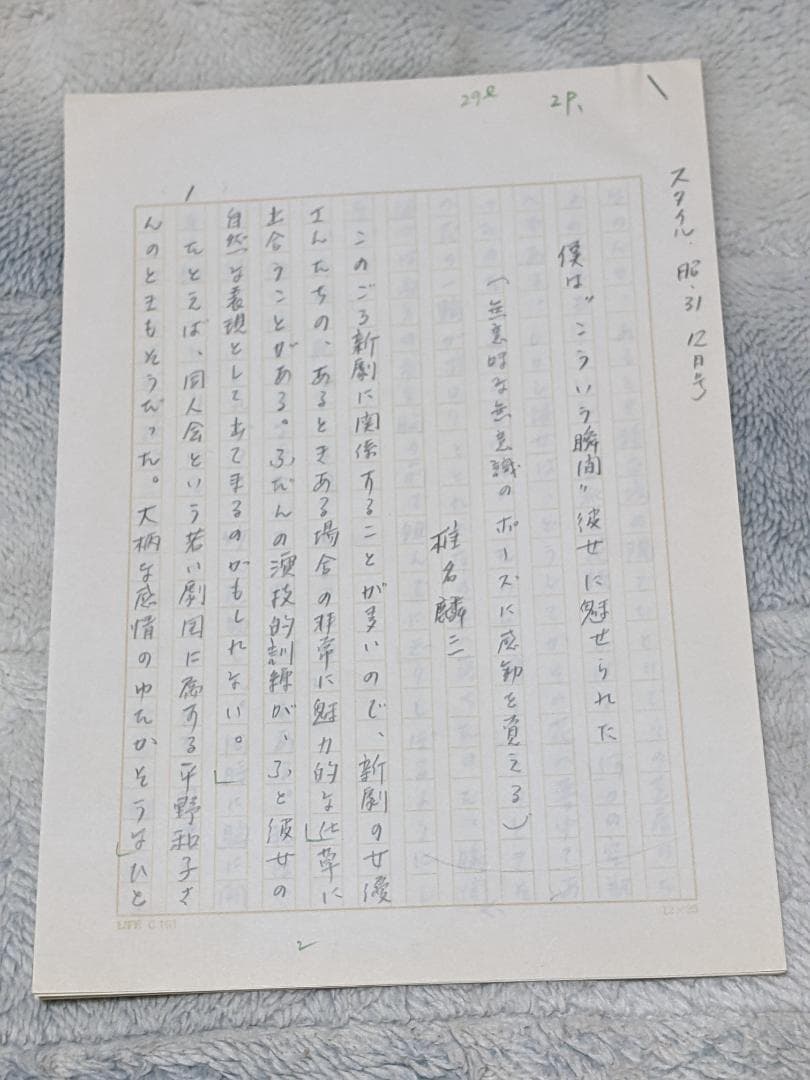 29ℓ 2P.
スタイル・昭・31 12月号
僕は"こういう瞬間"彼女に魅せられた
(無意味な無意識のポーズに感動を覚える)
椎名麟三
このごろ新劇に関係することが多いので、新劇の女優
さんたちの、あるときある場合の非常に魅力的な仕草に
出合うことがある。ふだんの演技的訓練が、ふと彼女の
自然な表現として出てきるのかもしれない。
たとえば、同人会という若い劇団に属する平野和子さ
んのときもそうだった。大柄な感情のゆたかそうなひと
LIFE C 151
12×25
2